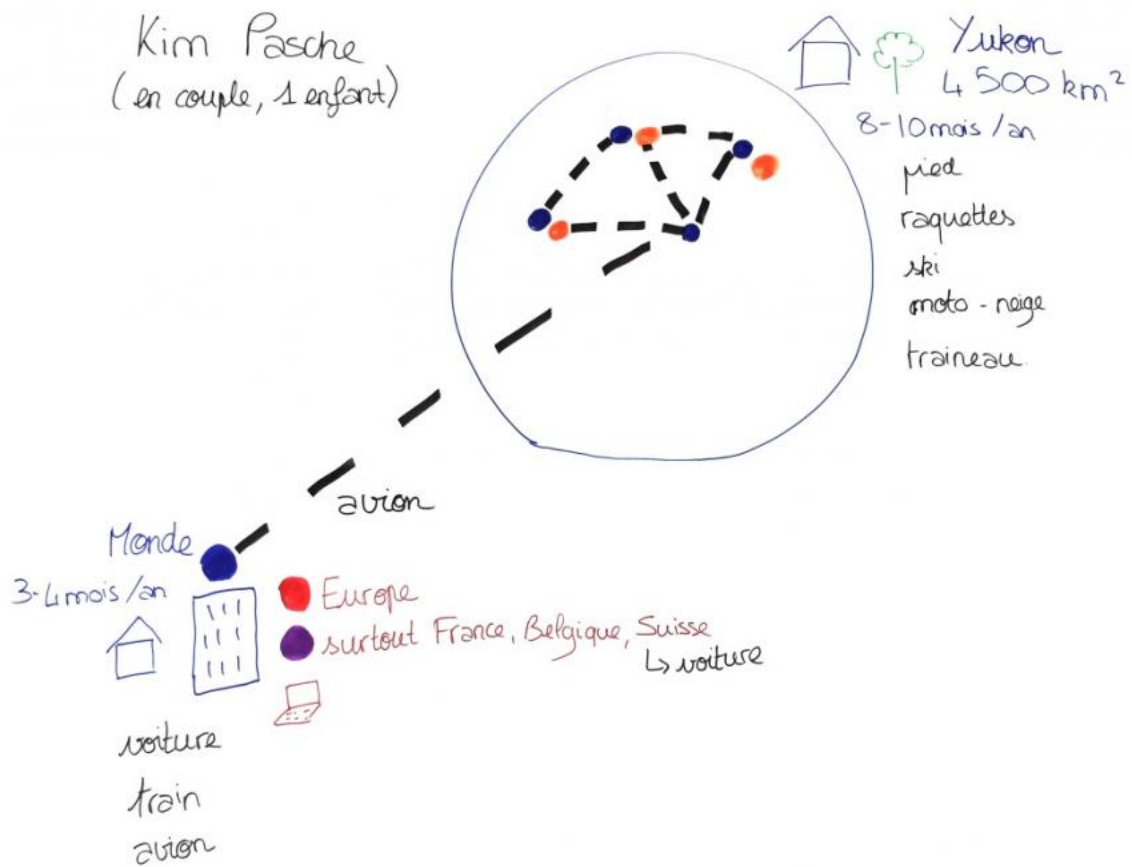 Kim Pasche
(en couple, 1 enfant)
Yukon
4 500 km²
8-10 mois /an
pied
raquettes
ski
moto - neige
traineau
avion
Monde
3-4 mois /an
Europe
surtout France, Belgique, Suisse
↳ voiture
voiture
train
avion